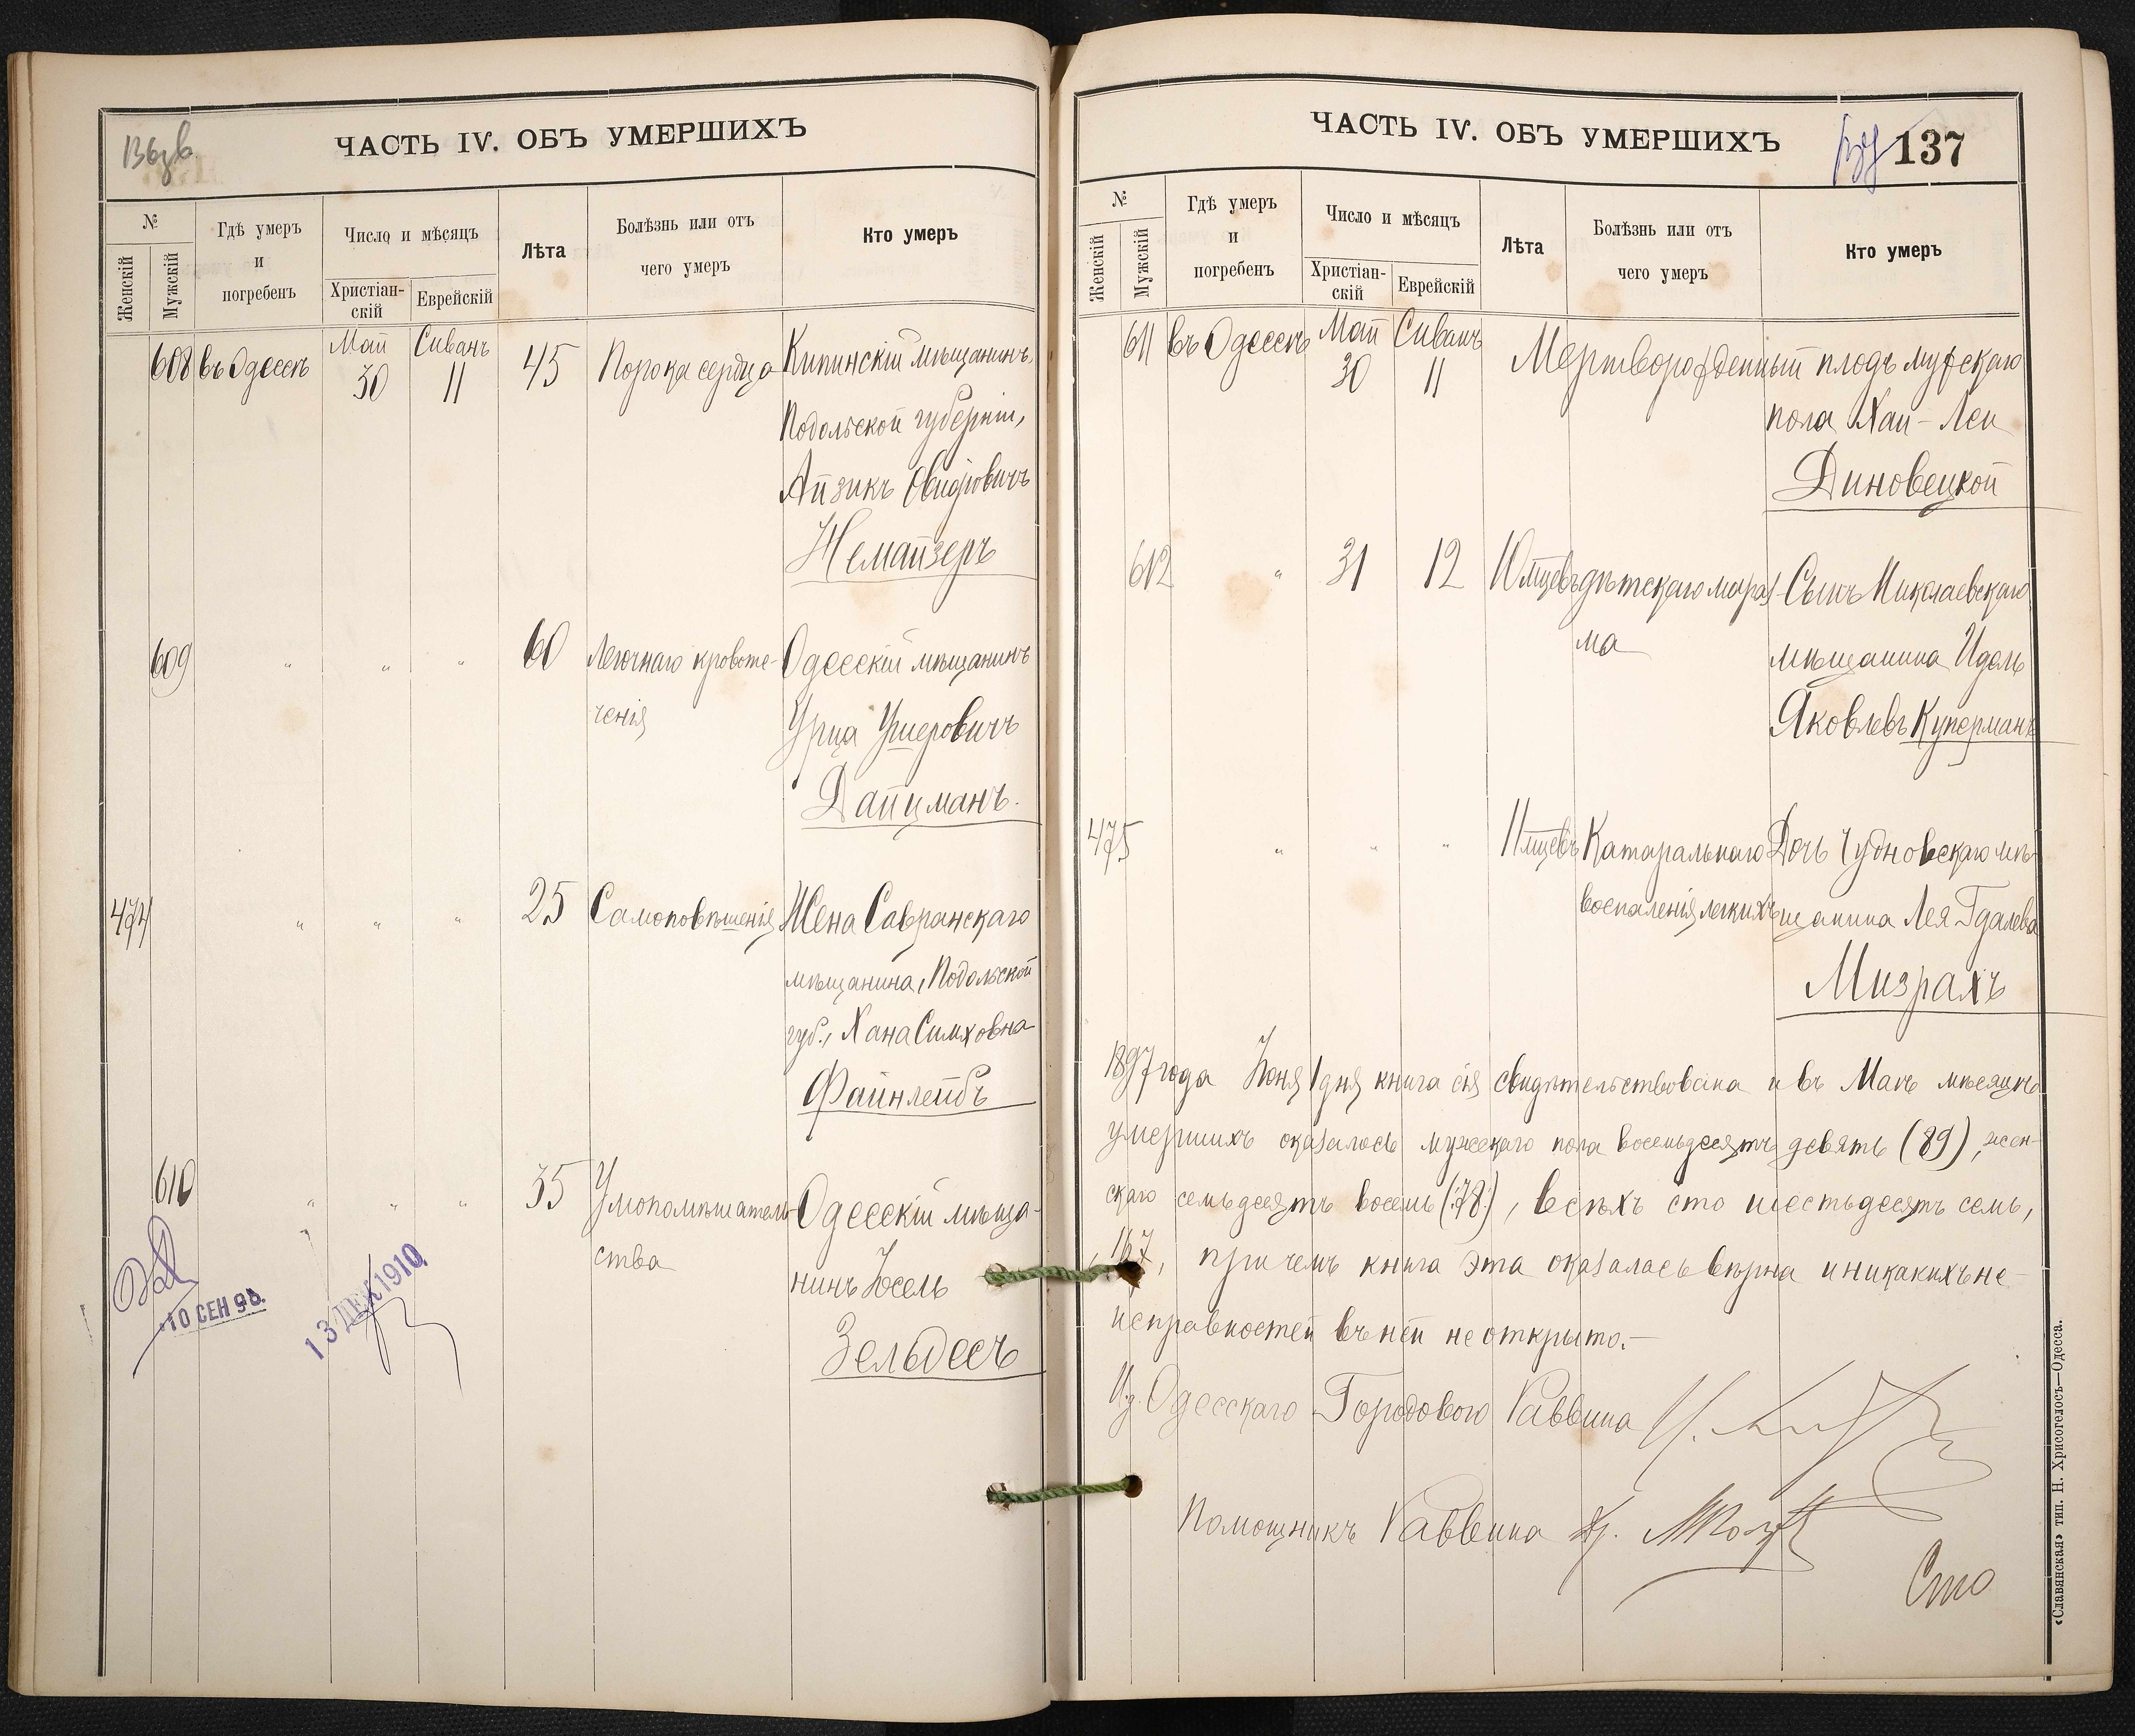 ЧАСТЬ IV. ОБЪ УМЕРШИХЪ
№
Женскій
Мужскій
Гдѣ умеръ
и
погребенъ
Число и мѣсяцъ
Христіан-
скій
Еврейскій
Лѣта
Болѣзнь или отъ
чего умеръ
Кто умеръ
608 въ Одессѣ Май 30 Сиванъ 11 45 Порока сердца Кипинскій мѣщанинъ,
Подольской губерніи,
Айзикъ
Немайзеръ
609 " " " 60 Легочнаго кровоте- Одесскій мѣщанинъ
ченія Урца Ушеровичъ
Дайцманъ.
474 " " " 25 Самоповѣшенія Жена Савранскаго
мѣщанина, Подольской
губ., Хана Симховна
Файнлейбъ
610 " " " 35 Умопомѣшатель- Одесскій мѣща-
ства нинъ Іосель
Зельдесъ
10 СЕН 98.
13 ДЕК 1910
ЧАСТЬ IV. ОБЪ УМЕРШИХЪ
137
№
Женскій
Мужскій
Гдѣ умеръ
и
погребенъ
Число и мѣсяцъ
Христіан-
скій
Еврейскій
Лѣта
Болѣзнь или отъ
чего умеръ
Кто умеръ
611 въ Одессѣ Май 30 Сиванъ 11 Мертворожденный плодъ мужскаго
пола Хаи-Леи
Диновецкой
612 " 31 12 10 мцевъ дѣтскаго мараз- Сынъ Николаевскаго
ма мѣщанина Идель
Яковлевъ Куперманъ
475 " " " 11 мцевъ Катаральнаго Дочь Чудновскаго мѣ-
воспаленія легкихъ щанина Лея Гдалева
Мизрахъ
1897 года Іюня 1 дня книга сія свидѣтельствована и въ Маѣ мѣсяцѣ
умершихъ оказалось мужскаго пола восемьдесятъ девять (89), жен-
скаго семьдесятъ восемь (78), всѣхъ сто шестьдесятъ семь,
167, причемъ книга эта оказалась вѣрна и никакихъ не-
исправностей въ ней не открыто.—
И.д. Одесскаго Городового Раввина
Помощникъ Раввина
Сто
«Славянская» тип. Н. Хрисогелосъ—Одесса.